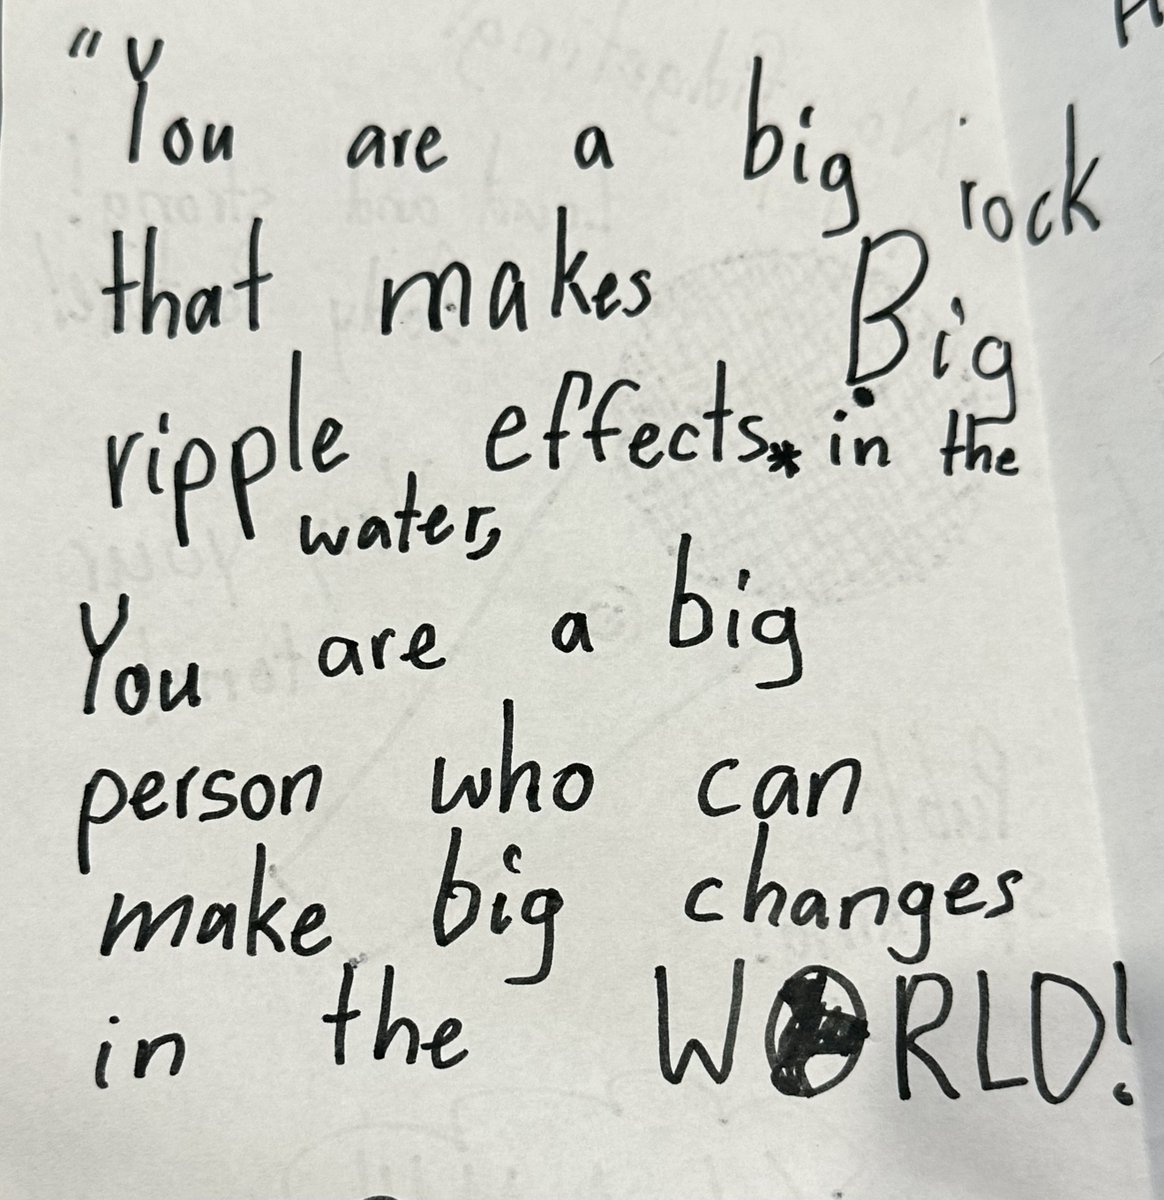 "You are a big rock
that makes Big
ripple effects.* in the
water,
You are a big
person who can
make big changes
in the WORLD!